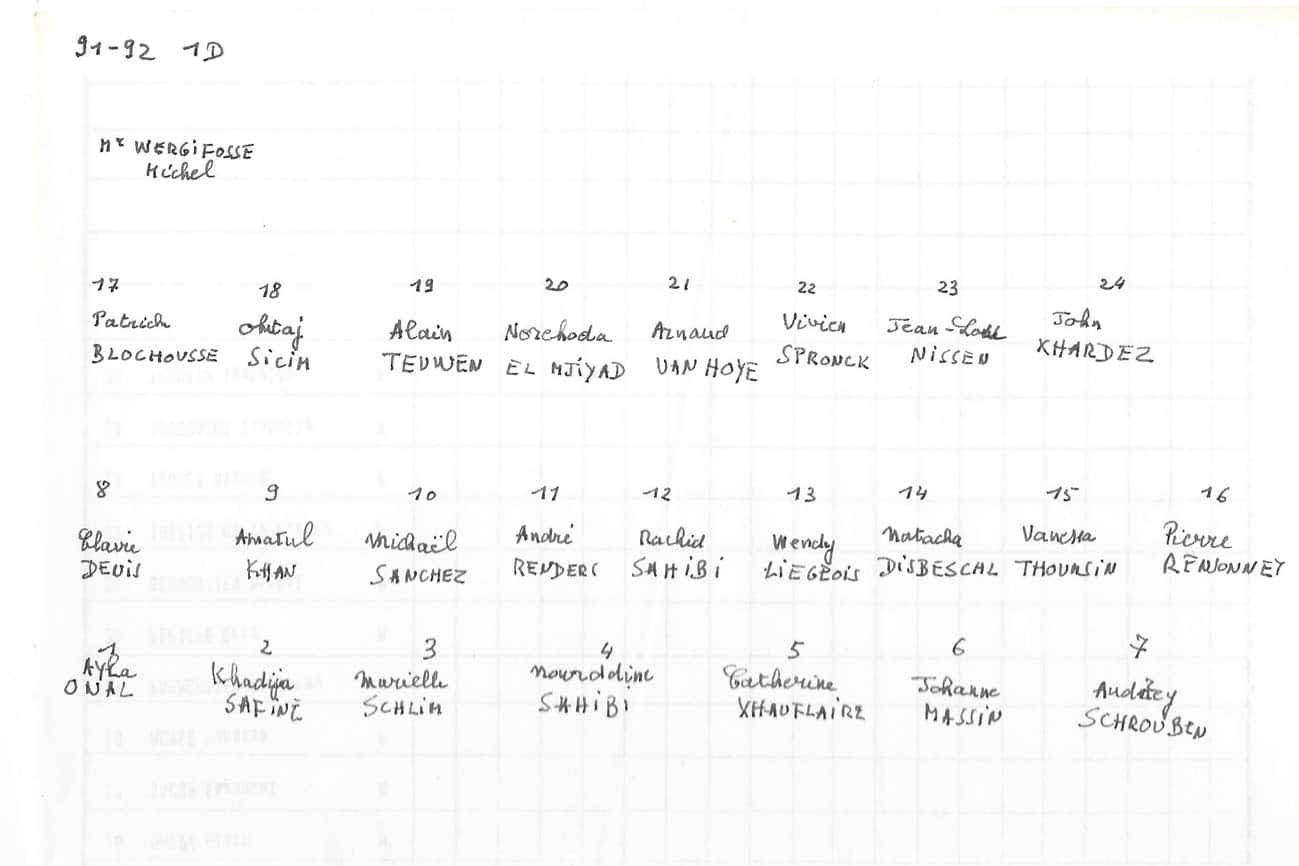 91-92 1D
Mr WERGIFOSSE
Michel
17 18 19 20 21 22 23 24
Patrick Ohtaj Alain Norehoda Arnaud Vivien Jean- John
BLOCHOUSSE SiCiM TEUWEN EL MJIYAD VAN HOYE SPRONCK NISSEN XHARDEZ
8 9 10 11 12 13 14 15 16
Clavie Amatul Michaël André Rachid Wendy Natacha Vanessa Pierre
DEVIS KHAN SANCHEZ RENDERS SAHIBI LIEGEOIS DISBESCAL THOUNSIN
1 2 3 4 5 6 7
Ayha Khadija Murielle Nourddine Catherine Johanne Audrey
ONAL SAFINE SCHLIM SAHIBI XHAUFLAIRE MASSIN SCHROUBEN